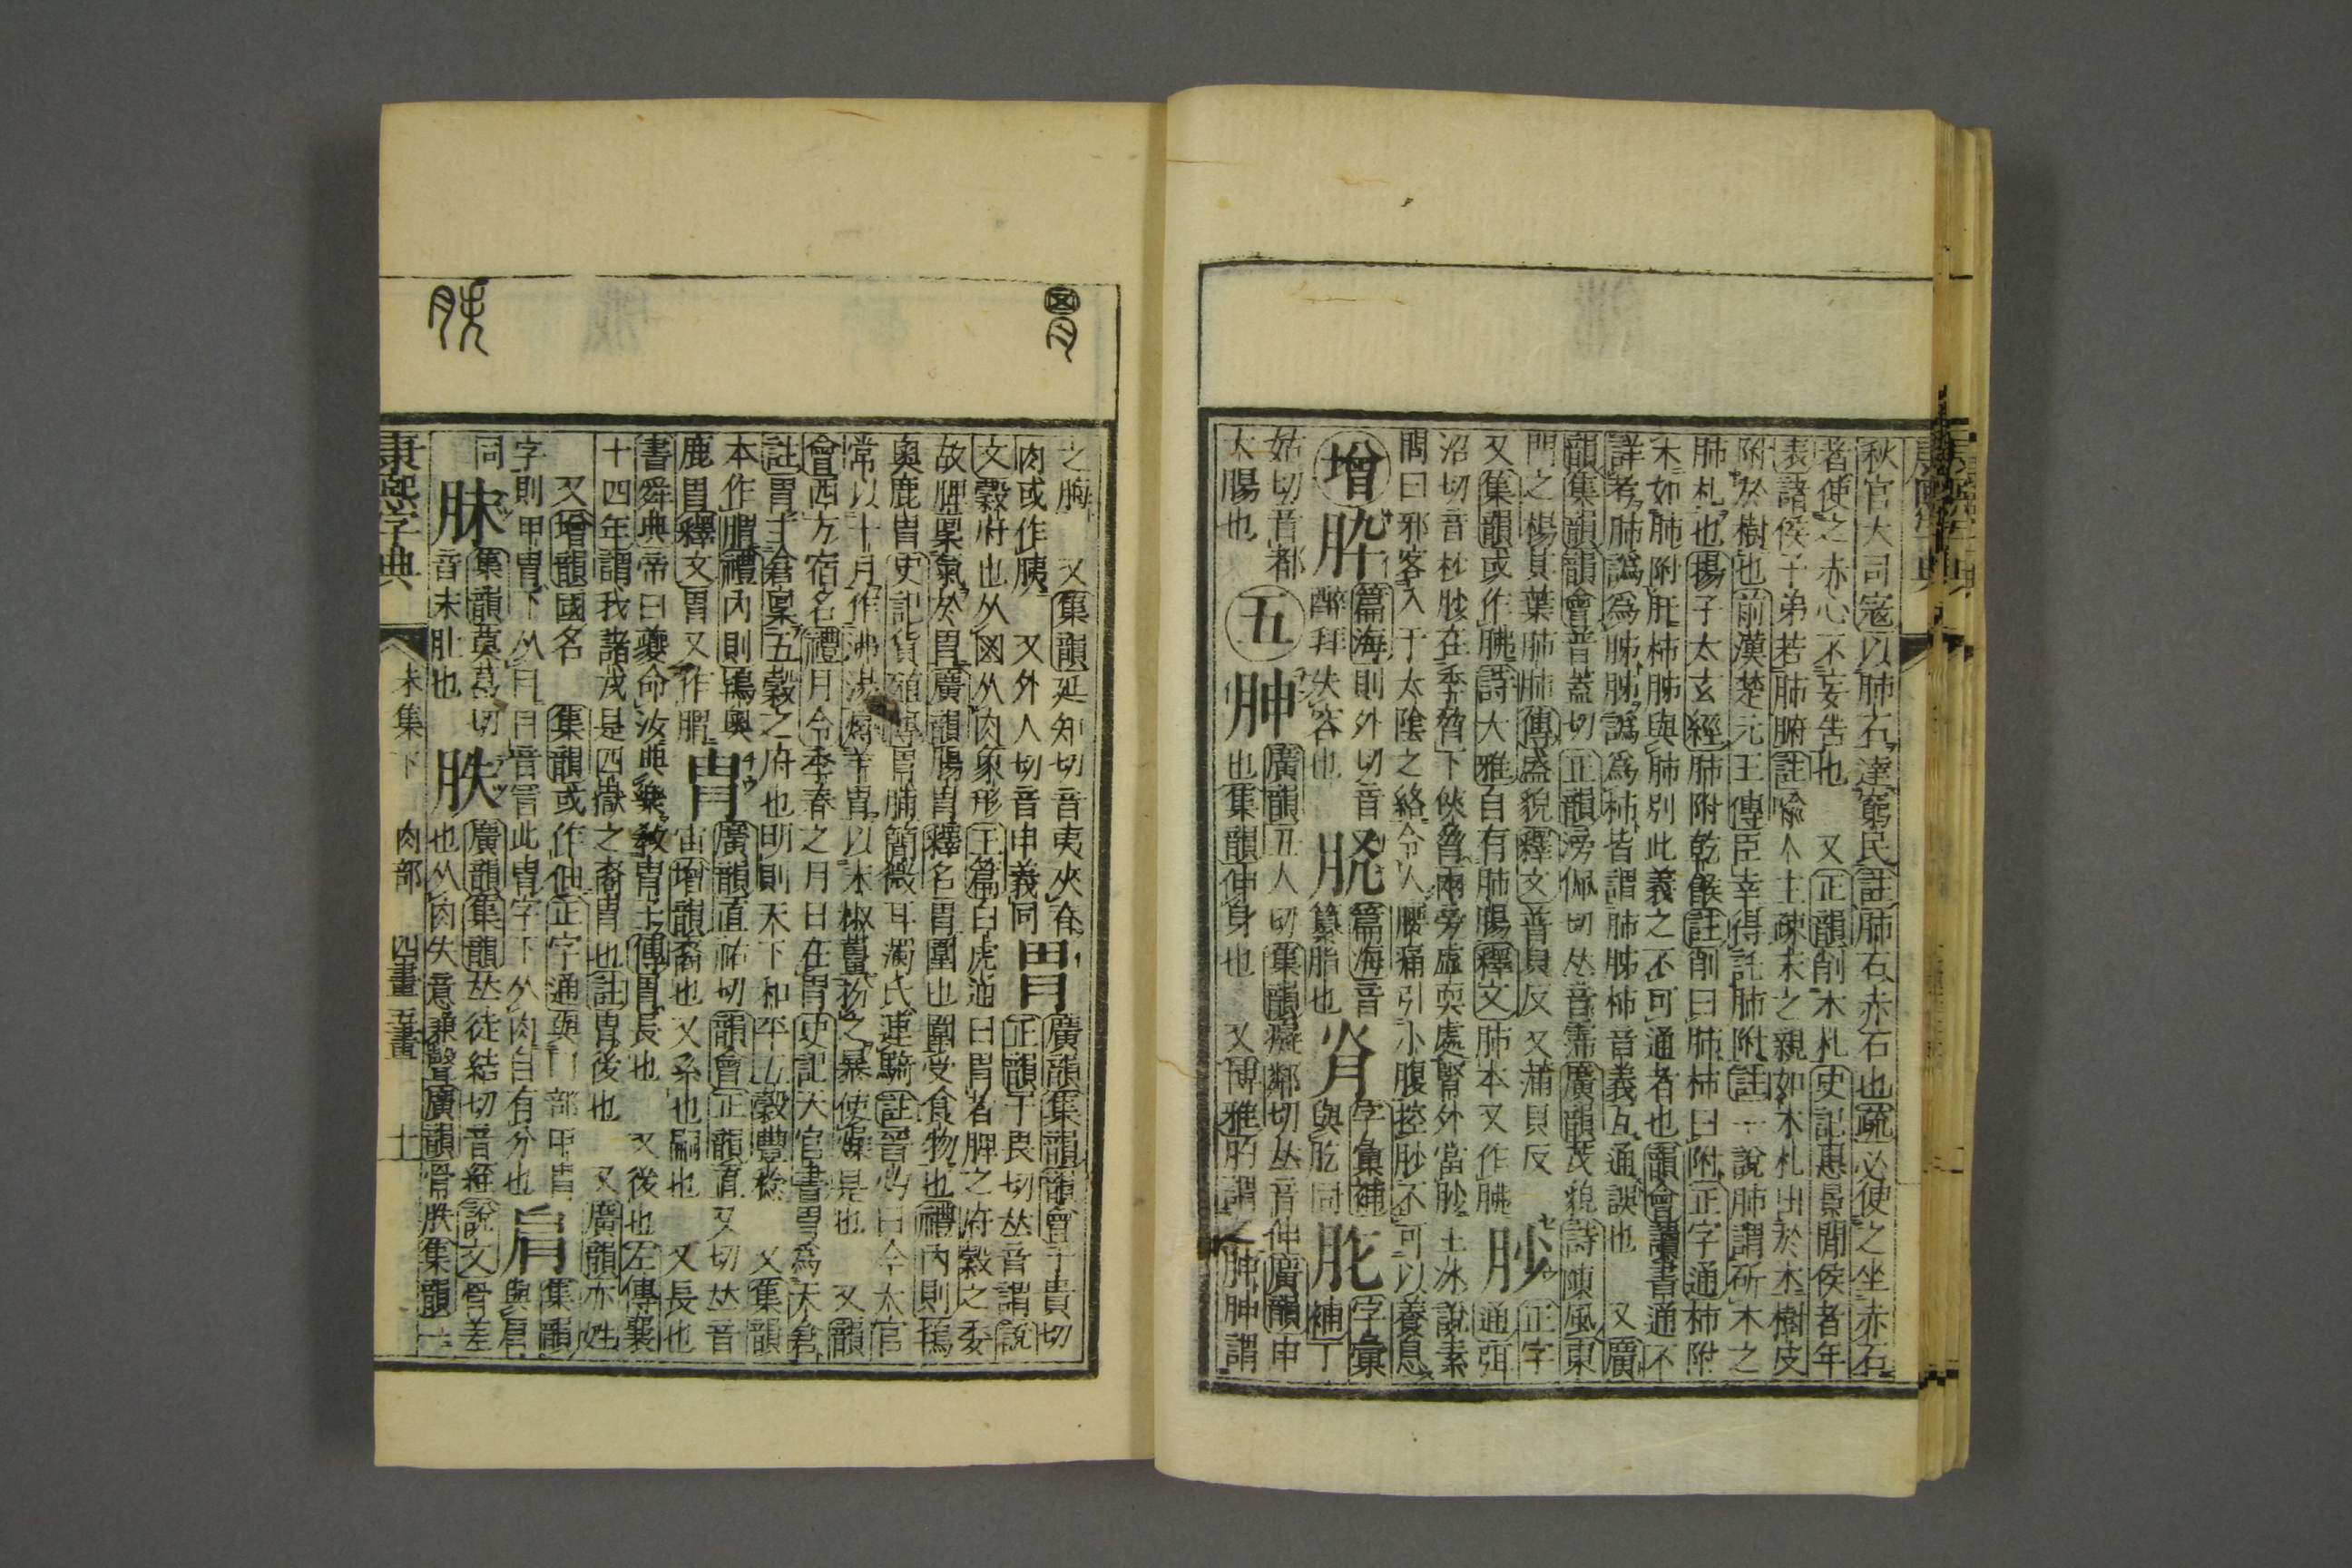 秋官大司寇以肺石達窮民註肺石赤石也疏必使之坐赤石
者使之赤心不妄告也 又正韻削木札史記惠景閒侯者年
表諸侯子弟若肺腑註喻人主疎末之親如木札出於木樹皮
附於樹也前漢楚元王傳臣幸得託肺附註一說肺謂斫木之
肺札也揚子太玄經肺附乾餱註削曰肺柿曰附正字通柿附
木如肺附肝柿胏與肺別此義之不可通者也韻會讀書通不
詳考肺譌爲胏胏譌爲柿皆謂肺胏柿音義互通誤也 又廣
韻集韻韻會普蓋切正韻滂佩切𠀤音霈廣韻茂貌詩陳風東
門之楊其葉肺肺傳盛貌釋文普貝反 又蒲貝反
又集韻或作胇詩大雅自有肺腸釋文肺本又作胇 䏚 正字通弭
沼切音杪䏚在季脅下俠脊兩旁虛耎處腎外當䏚土冰說素
問曰邪客入于太陰之絡令人腰痛引小腹控䏚不可以養息
增 脺 篇海則外切音醉拜失容也 䏝 篇海音纂脂也 肻 字彙補與肐同 𦙀 字彙補丁
姑切音都
太腸也
五 胂 廣韻丑人切集韻癡鄰切𠀤音伸廣韻申也集韻伸身也 又博雅䏰謂之胂胂謂
之脢 又集韻延知切音夷夾脊
肉或作胰 又外人切音申義同 胃 廣韻集韻韻會于貴切正韻于畏切𠀤音謂說
文穀府也从𡇒从肉象形玉篇白虎通曰胃者脾之府穀之委
故脾稟氣於胃廣韻腸胃釋名胃圍也圍受食物也禮內則鴇
奧鹿胃史記貨殖傳胃脯簡微耳濁氏連騎註晉灼曰今太官
常以十月作沸湯燖羊胃以末椒薑扮之暴使燥是也 又韻
會西方宿名禮月令季春之月日在胃史記天官書胃爲天倉
註胃主倉稟五穀之府也明則天下和平五穀豐稔 又集韻
本作䐤禮內則鴇奧
鹿胃釋文胃又作䐤 胄 廣韻直祐切韻會正韻直又切𠀤音宙增韻裔也 又系也嗣也 又長也
書舜典帝曰夔命汝典樂敎胄子傳胄長也 又後也左傳襄
十四年謂我諸戎是四嶽之裔胄也註胄後也 又廣韻亦姓
又增韻國名 集韻或作伷正字通與冂部甲冑
字則甲冑下从冃冃音冒此胄字下从肉自有分也 𦙄 集韻與脣
同 䏞 集韻莫葛切音末肚也 胅 廣韻集韻𠀤徒結切音絰說文骨差也从肉失意兼聲廣韻骨胅集韻一
康熙字典 未集下 肉部 四畫 五畫 十一